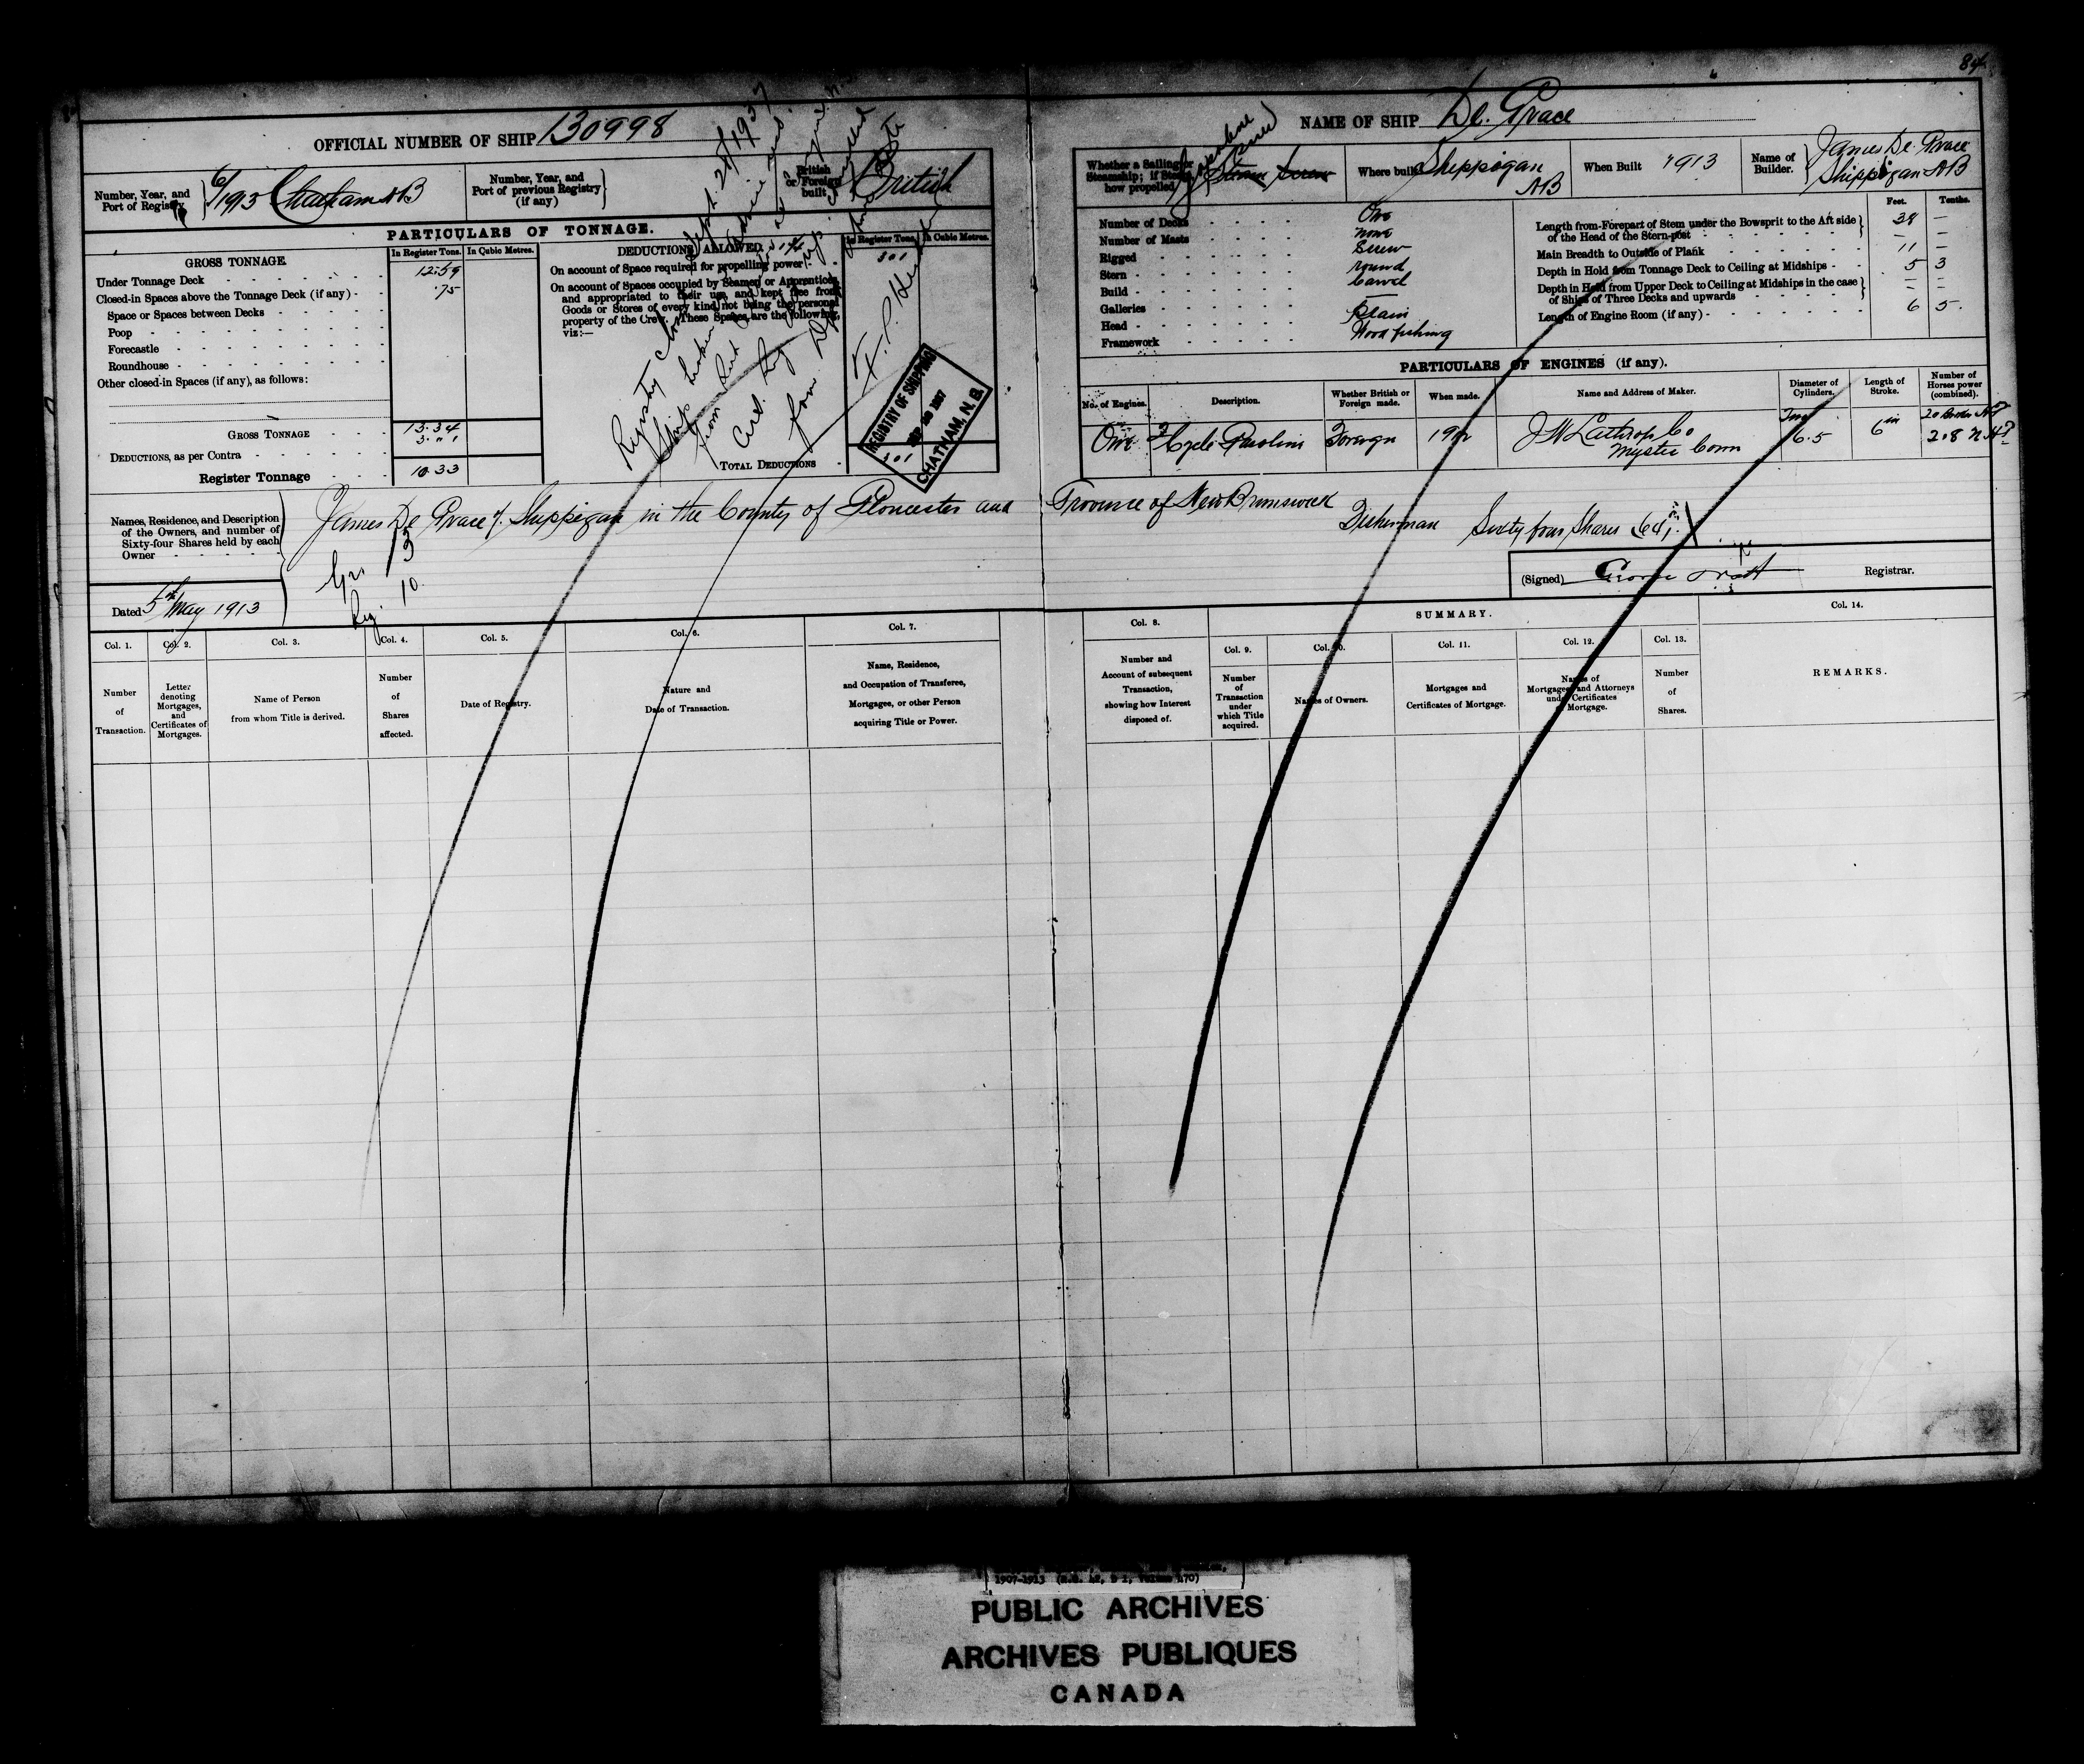 84
OFFICIAL NUMBER OF SHIP 130998
NAME OF SHIP De. Grace
Number, Year, and Port of Registry } 6/1913 Chatham NB
Number, Year, and Port of previous Registry (if any) }
British or Foreign built. British
Whether a Sailing or Steamship; if Steam, how propelled Steam Screw
Where built Shippigan NB
When Built 1913
Name of Builder. } James De Grace Shippigan NB
PARTICULARS OF TONNAGE.
GROSS TONNAGE
In Register Tons. In Cubic Metres.
Under Tonnage Deck 12.59
Closed-in Spaces above the Tonnage Deck (if any) .75
Space or Spaces between Decks
Poop
Forecastle
Roundhouse
Other closed-in Spaces (if any), as follows:
GROSS TONNAGE 13.34
DEDUCTIONS, as per Contra 3.01
Register Tonnage 10.33
DEDUCTIONS ALLOWED.
In Register Tons. In Cubic Metres.
On account of Space required for propelling power 301
On account of Spaces occupied by Seamen or Apprentices,
and appropriated to their use, and kept free from
Goods or Stores of every kind, not being the personal
property of the Crew. These Spaces are the following,
viz:—
TOTAL DEDUCTIONS 301
Registry closed Sept 28/1937
REGISTRY OF SHIPPING
SEP 1937
CHATHAM, N.B.
Number of Decks One
Number of Masts none
Rigged Screw
Stern round
Build carvel
Galleries —
Head Plain
Framework Wood fishing
Feet. Tenths.
Length from Forepart of Stem under the Bowsprit to the Aft side
of the Head of the Stern-post } 38 —
Main Breadth to Outside of Plank 11 —
Depth in Hold from Tonnage Deck to Ceiling at Midships 5 3
Depth in Hold from Upper Deck to Ceiling at Midships in the case
of Ships of Three Decks and upwards } — —
Length of Engine Room (if any) 6 5
PARTICULARS OF ENGINES (if any).
No. of Engines. Description. Whether British or Foreign made. When made. Name and Address of Maker. Diameter of Cylinders. Length of Stroke. Number of Horses power (combined).
One 2 Cycle Gasoline Foreign 1912 J W Lathrop Co Mystic Conn 6.5 6 in 20 Brake HP 2.8 N HP
Names, Residence, and Description
of the Owners, and number of
Sixty-four Shares held by each
Owner
James De Grace of Shippigan in the County of Gloucester and Province of New Brunswick
Fisherman Sixty four Shares (64)
Grs 13
Reg. 10
Dated 5th May 1913
(Signed) Registrar.
SUMMARY.
Col. 1. Number of Transaction.
Col. 2. Letter denoting Mortgages, and Certificates of Mortgages.
Col. 3. Name of Person from whom Title is derived.
Col. 4. Number of Shares affected.
Col. 5. Date of Registry.
Col. 6. Nature and Date of Transaction.
Col. 7. Name, Residence, and Occupation of Transferee, Mortgagee, or other Person acquiring Title or Power.
Col. 8. Number and Account of subsequent Transaction, showing how Interest disposed of.
Col. 9. Number of Transaction under which Title acquired.
Col. 10. Names of Owners.
Col. 11. Mortgages and Certificates of Mortgage.
Col. 12. Names of Mortgagees and Attorneys under Certificates of Mortgage.
Col. 13. Number of Shares.
Col. 14. REMARKS.
PUBLIC ARCHIVES
ARCHIVES PUBLIQUES
CANADA